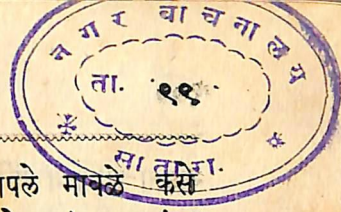 नगर वाचनालय
ता. ९९
सातारा.
पले मावळे कसे